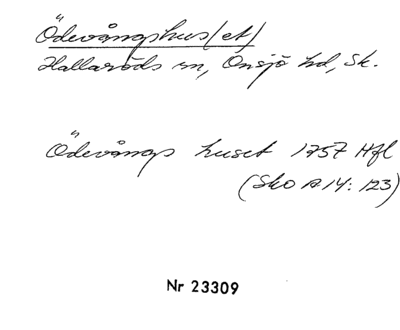 Ödevångshus(et)
Hallaröds sn, Onsjö hd, Sk.
Ödevångs huset 1757 Hfl
(Sko A 14: 123)
Nr 23309